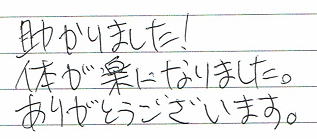 助かりました!
体が楽になりました。
ありがとうございます。